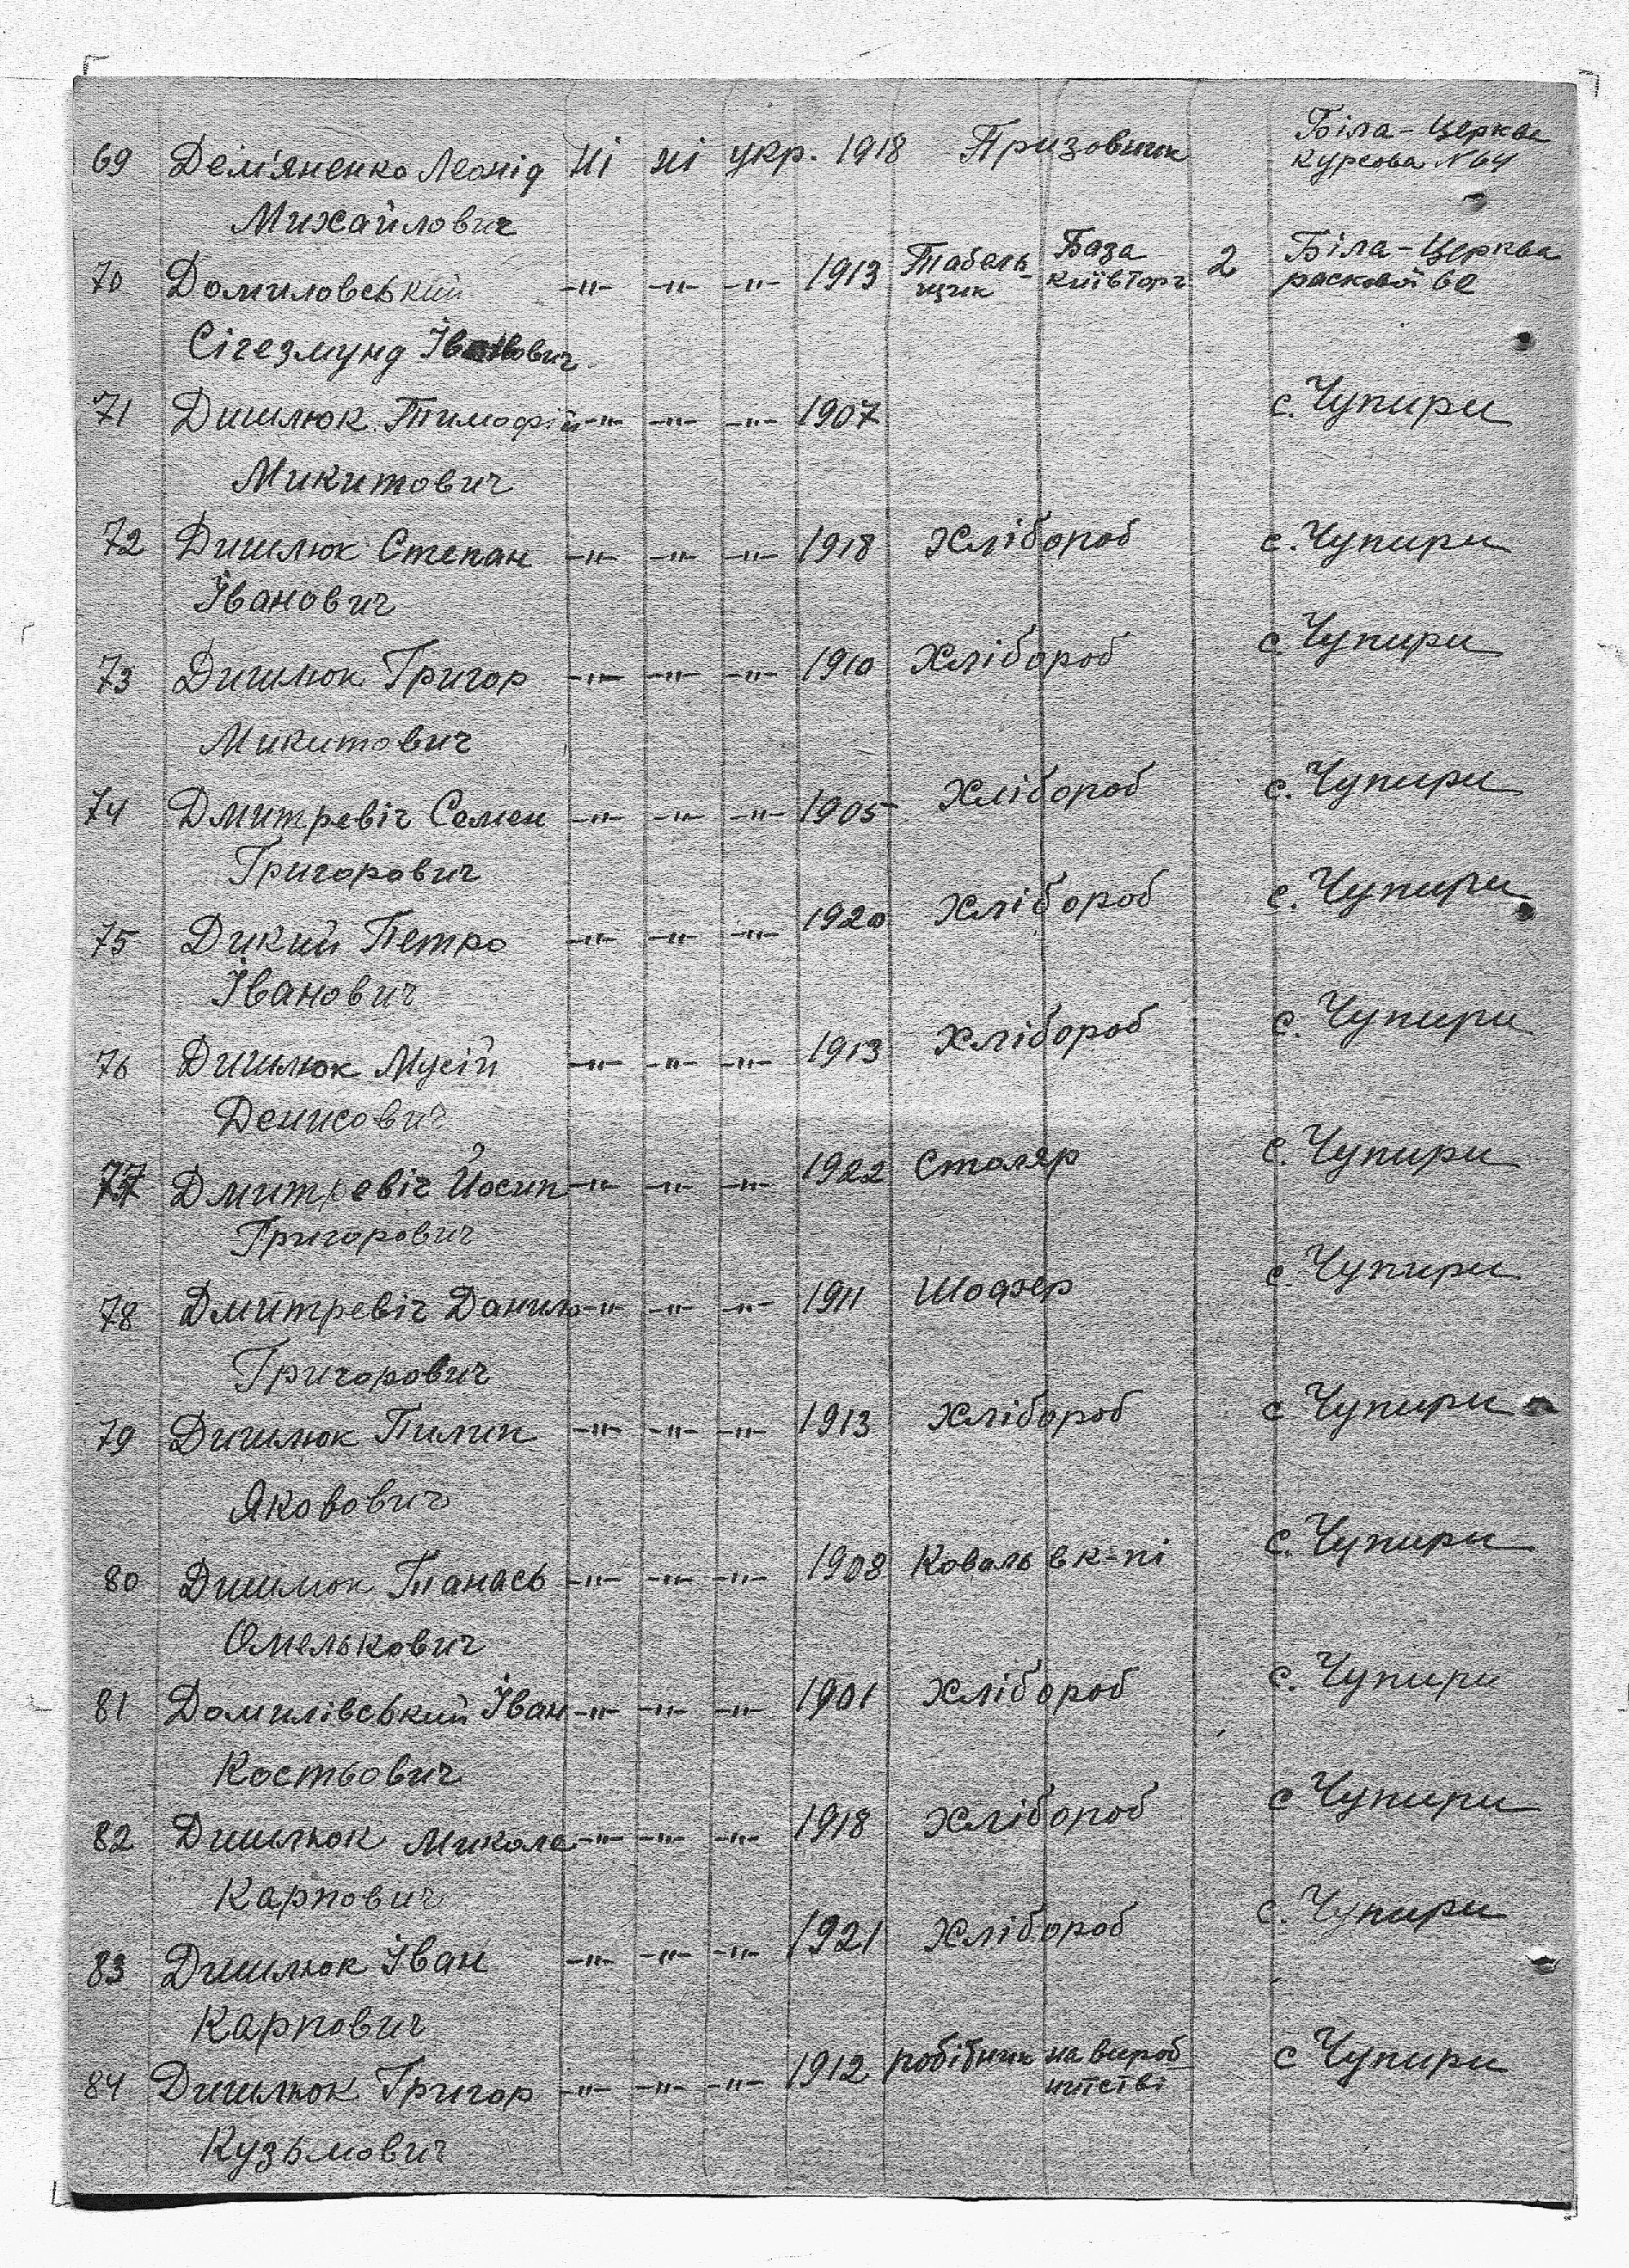 69 Дем'яненко Леонід ні ні укр. 1918 Призовник Біла-Церква
Михайлович Курсова N 64
70 Домиловський -"- -"- -"- 1913 Табель- База 2 Біла-Церква
щик Київторг 62
Сігезмунд Іванович
71 Дишлюк Тимофій -"- -"- -"- 1907 с. Чупири
Микитович
72 Дишлюк Степан -"- -"- -"- 1918 Хлібороб с. Чупири
Іванович
73 Дишлюк Григор -"- -"- -"- 1910 Хлібороб с Чупири
Микитович
74 Дмитревіч Семен -"- -"- -"- 1905 Хлібороб с. Чупири
Григорович
75 Дикий Петро -"- -"- -"- 1920 Хлібороб с. Чупири
Іванович
76 Дишлюк Мусій -"- -"- -"- 1913 Хлібороб с. Чупири
Денисович
77 Дмитревіч Йосип -"- -"- -"- 1922 Столяр с. Чупири
Григорович
78 Дмитревіч Данило -"- -"- -"- 1911 Шофер с Чупири
Григорович
79 Дишлюк Пилип -"- -"- -"- 1913 Хлібороб с Чупири
Якович
80 Дишлюк Танась -"- -"- -"- 1908 Коваль в к-пі с. Чупири
Омелькович
81 Домилівський Іван -"- -"- -"- 1901 Хлібороб с. Чупири
Костьович
82 Дишлюк Микола -"- -"- -"- 1918 Хлібороб с Чупири
Карпович
83 Дишлюк Іван -"- -"- -"- 1921 Хлібороб с. Чупири
Карпович
84 Дишлюк Григор -"- -"- -"- 1912 робітник на вироб с Чупири
ництві
Кузьмович